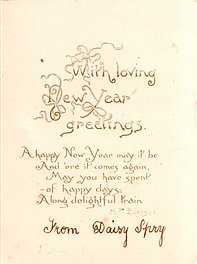 With loving
New Year
greetings.
A happy New Year may it be
And 'ere it comes again,
May you have spent
of happy days,
A long delightful train
From Daisy Spry